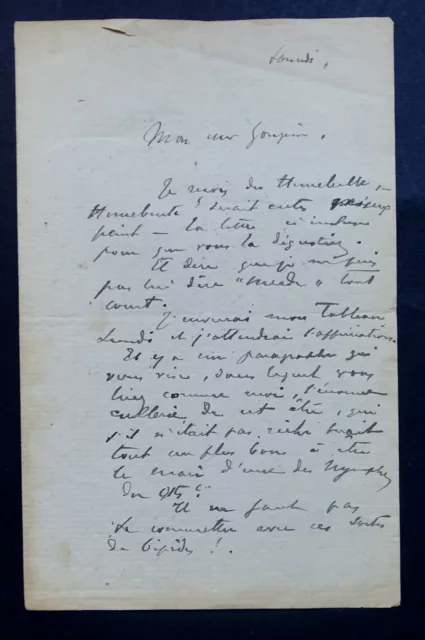 Samedi,
Mon cher Goupier.
Je reçois de
serait cette
peint — la lettre ci incluse
pour que vous la dégustiez.
Et dire que je ne puis
pas lui dire "merde" tout
court.
J'enverrai mon Tableau
Lundi et j'attendrai l'appréciation.
Il y a un paragraphe qui
vous vise, dans lequel vous
lirez comme moi, l'énorme
de cet être, qui
s'il n'était pas riche serait
tout au plus bon à être
le d'une des Nymphes
du
Il ne faut pas
se commettre avec ces sortes
de bipèdes!